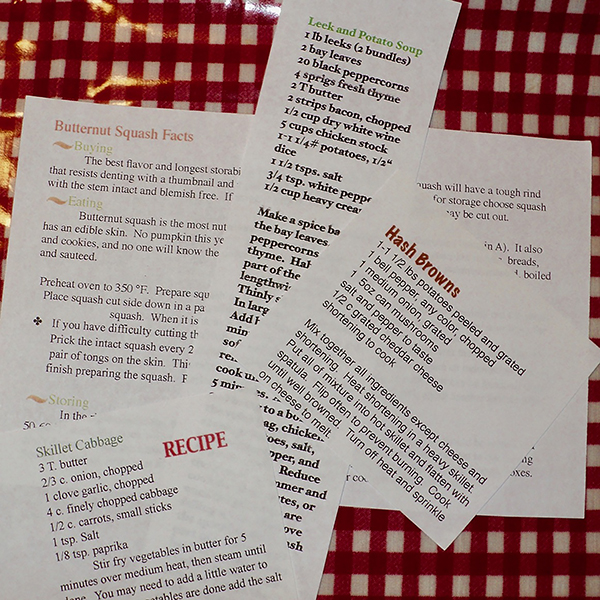 Leek and Potato Soup
1 lb leeks (2 bundles)
2 bay leaves
20 black peppercorns
4 sprigs fresh thyme
2 T butter
2 strips bacon, chopped
1/2 cup dry white wine
5 cups chicken stock
1-1 1/4# potatoes, 1/2"
dice
1 1/2 tsps. salt
3/4 tsp. white pepp
1/2 cup heavy crea
Make a spice ba
the bay leaves
peppercorns
thyme. Hal
part of the
lengthwi
Thinly s
In larg
Add
min
sof
re
cook un
5 minutes
to a bo
ag, chicken
toes, salt,
pper, and
Reduce
mmer and
utes, or
are
ove
ash
Butternut Squash Facts
Buying
The best flavor and longest storabi
that resists denting with a thumbnail and
with the stem intact and blemish free. If
Eating
Butternut squash is the most nut
has an edible skin. No pumpkin this ye
and cookies, and no one will know the
and sauteed.
Preheat oven to 350 °F. Prepare squ
Place squash cut side down in a pa
squash. When it is
✤ If you have difficulty cutting th
Prick the intact squash every 2
pair of tongs on the skin. Thi
finish preparing the squash. F
Storing
In the
quash will have a tough rind
for storage choose squash
may be cut out.
in A). It also
breads,
boiled
ng
oxes.
or co
Hash Browns
1-1 1/2 lbs potatoes peeled and grated
1 bell pepper, any color, chopped
1 medium onion, grated
1 5oz can mushrooms
salt and pepper to taste
1/2 c grated cheddar cheese
shortening to cook
Mix together all ingredients except cheese and
shortening. Heat shortening in a heavy skillet.
Put all of mixture into hot skillet and flatten with
spatula. Flip often to prevent burning. Cook
until well browned. Turn off heat and sprinkle
on cheese to melt.
Skillet Cabbage
RECIPE
3 T. butter
2/3 c. onion, chopped
1 clove garlic, chopped
4 c. finely chopped cabbage
1/2 c. carrots, small sticks
1 tsp. Salt
1/8 tsp. paprika
Stir fry vegetables in butter for 5
minutes over medium heat, then steam until
done. You may need to add a little water to
tables are done add the salt